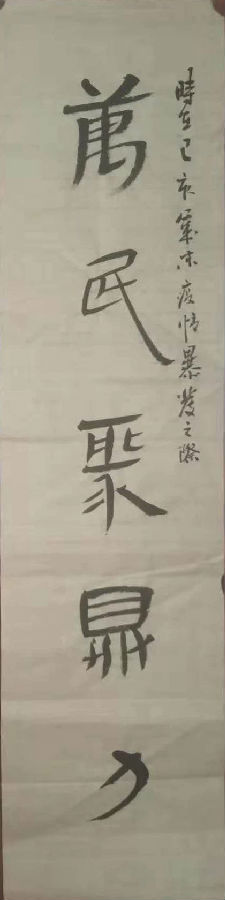 時在己亥歲末疫情暴發之際
萬民聚鼎力